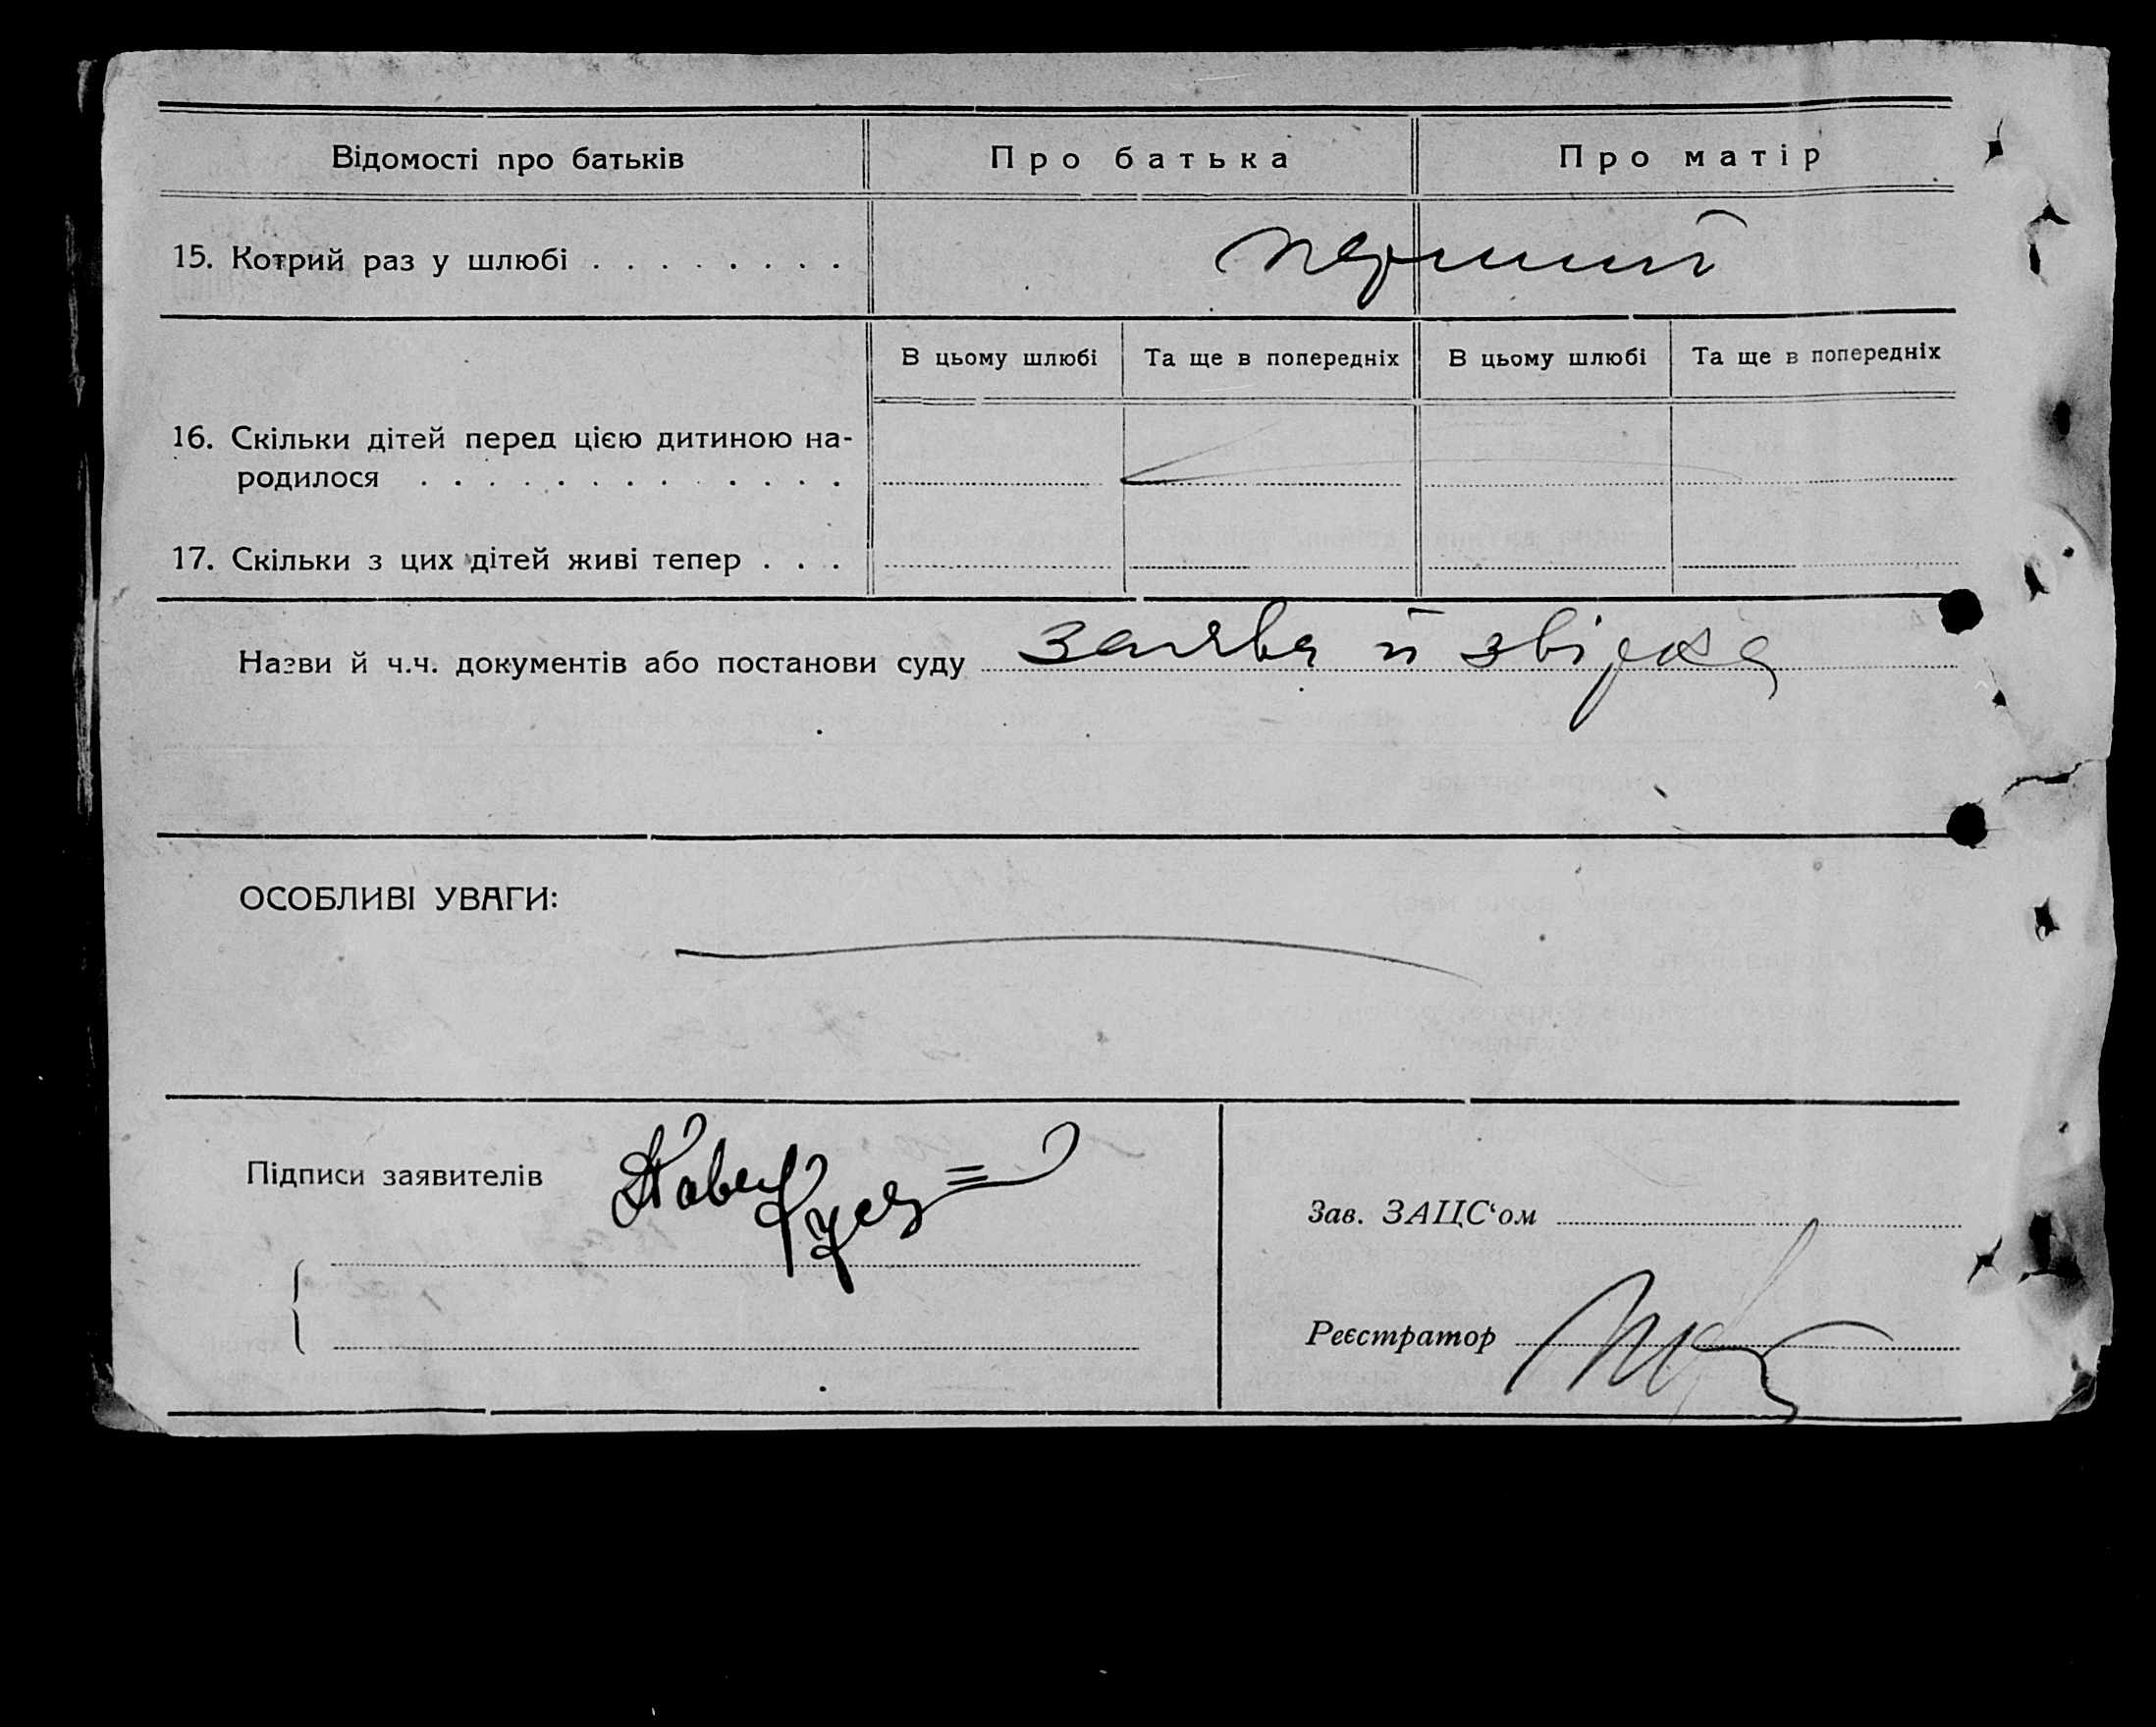 Відомості про батьків Про батька Про матір
15. Котрий раз у шлюбі . . . . . . . . перший
В цьому шлюбі Та ще в попередніх В цьому шлюбі Та ще в попередніх
16. Скільки дітей перед цією дитиною на-
родилося . . . . . . . . . . . . . .
17. Скільки з цих дітей живі тепер . . .
Назви й ч.ч. документів або постанови суду заява й звірка
ОСОБЛИВІ УВАГИ:
Підписи заявителів
Зав. ЗАЦС‘ом
Реєстратор